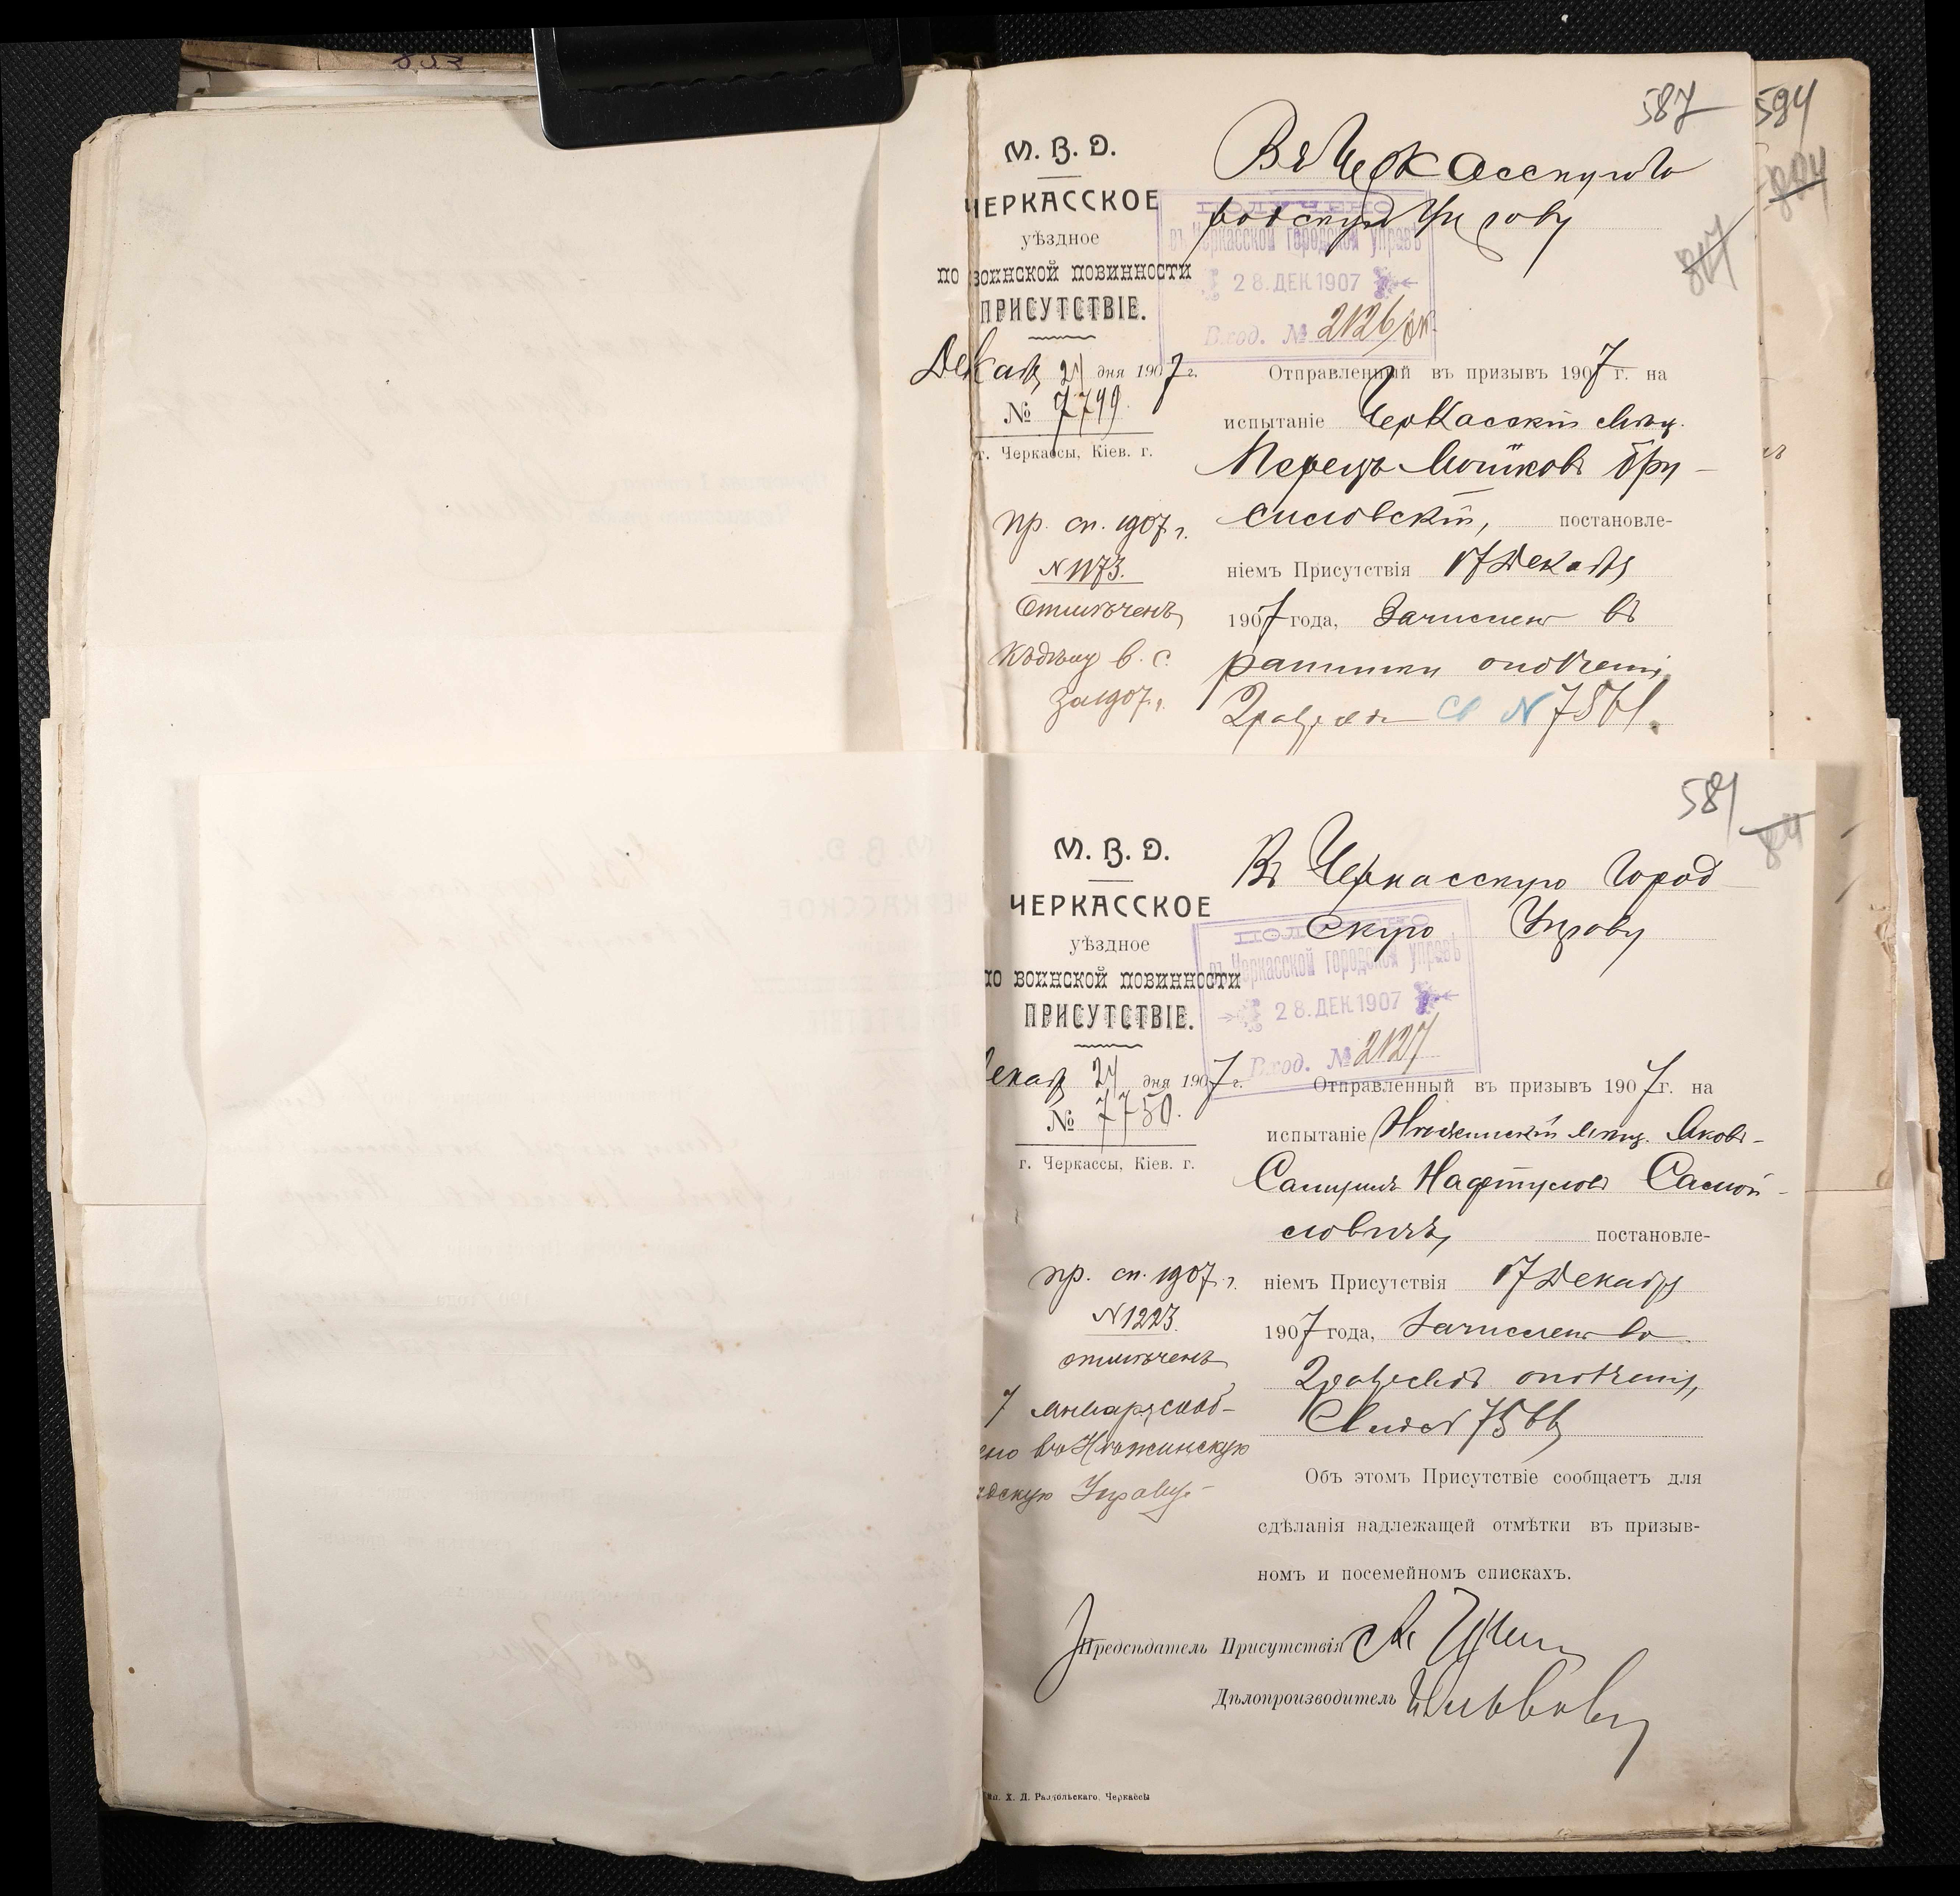 587
594
М. В. Д.
ЧЕРКАССКОЕ
уѣздное
по воинской повинности
ПРИСУТСТВІЕ.
Декаб 24 дня 1907 г.
№ 7749.
г. Черкассы, Кіев. г.
Въ Черкасскую Го
родскую Управу
ПОЛУЧЕНО
въ Черкасской городской управѣ
28.ДЕК.1907
Вход. № 2126
Отправленный въ призывъ 1907 г. на
испытаніе Черкасскій мѣщ.
Перецъ Мошковъ Бру-
силовскій, постановле-
ніемъ Присутствія 17 Декабря
1907 года, Зачислен въ
ратники ополченія
2 разряда св N
пр. сп. 1907 г.
N 1173.
Отмѣченъ
за 1907 г.
581
М. В. Д.
ЧЕРКАССКОЕ
уѣздное
по воинской повинности
ПРИСУТСТВІЕ.
Декаб 24 дня 1907 г.
№ 7750.
г. Черкассы, Кіев. г.
Въ Черкасскую Город
скую Управу
ПОЛУЧЕНО
въ Черкасской городской управѣ
28.ДЕК.1907
Вход. № 2127
Отправленный въ призывъ 1907 г. на
испытаніе Нѣжинскій мѣщ. Яковъ-
Самуилъ Нафтуловъ Самой-
ловичъ, постановле-
ніемъ Присутствія 17 Декабря
1907 года, Зачислен во
2 разрядъ ополченія,
Объ этомъ Присутствіе сообщаетъ для
сдѣланія надлежащей отмѣтки въ призыв-
номъ и посемейномъ спискахъ.
Предсѣдатель Присутствія
Дѣлопроизводитель
пр. сп. 1907 г.
N 1223.
отмѣченъ
7 января сооб-
ено въ Нѣжинскую
одскую Управу
ип. Х. Д. Радкольскаго, Черкассы